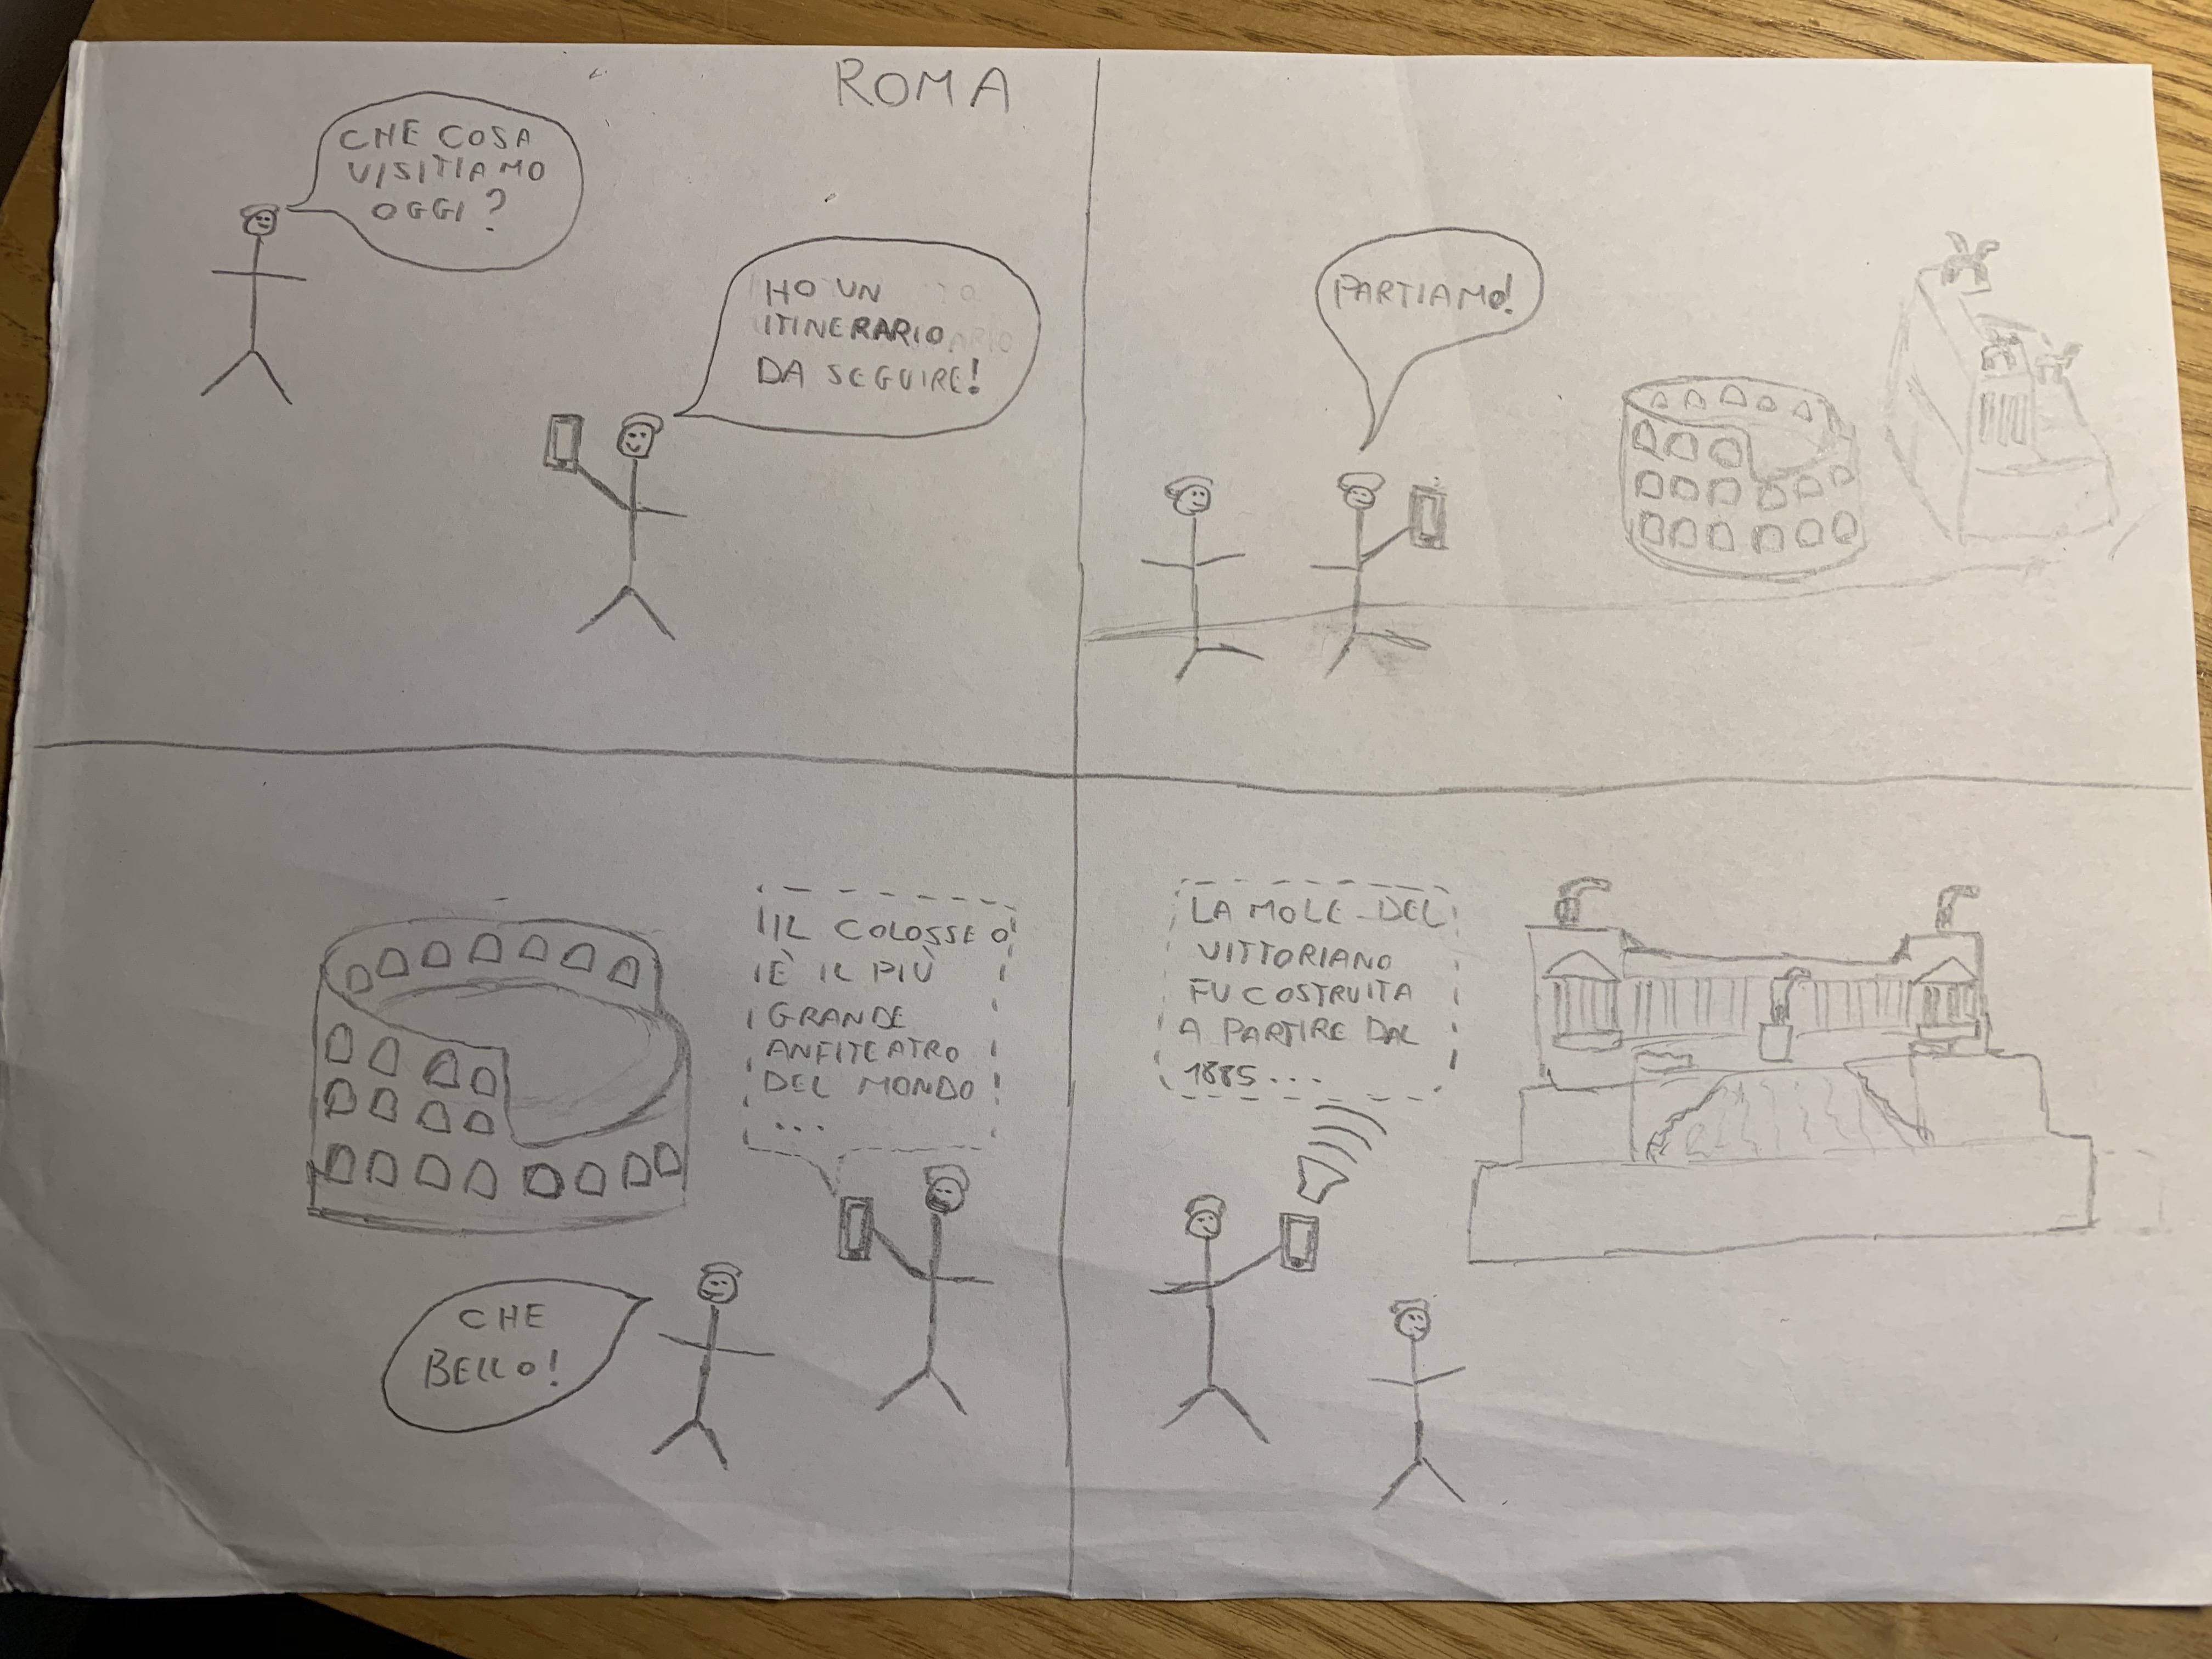 ROMA
CHE COSA
VISITIAMO
OGGI?
HO UN
ITINERARIO
DA SEGUIRE!
PARTIAMO!
IL COLOSSEO
È IL PIÙ
GRANDE
ANFITEATRO
DEL MONDO
...
CHE
BELLO!
LA MOLE DEL
VITTORIANO
FU COSTRUITA
A PARTIRE DAL
1885...